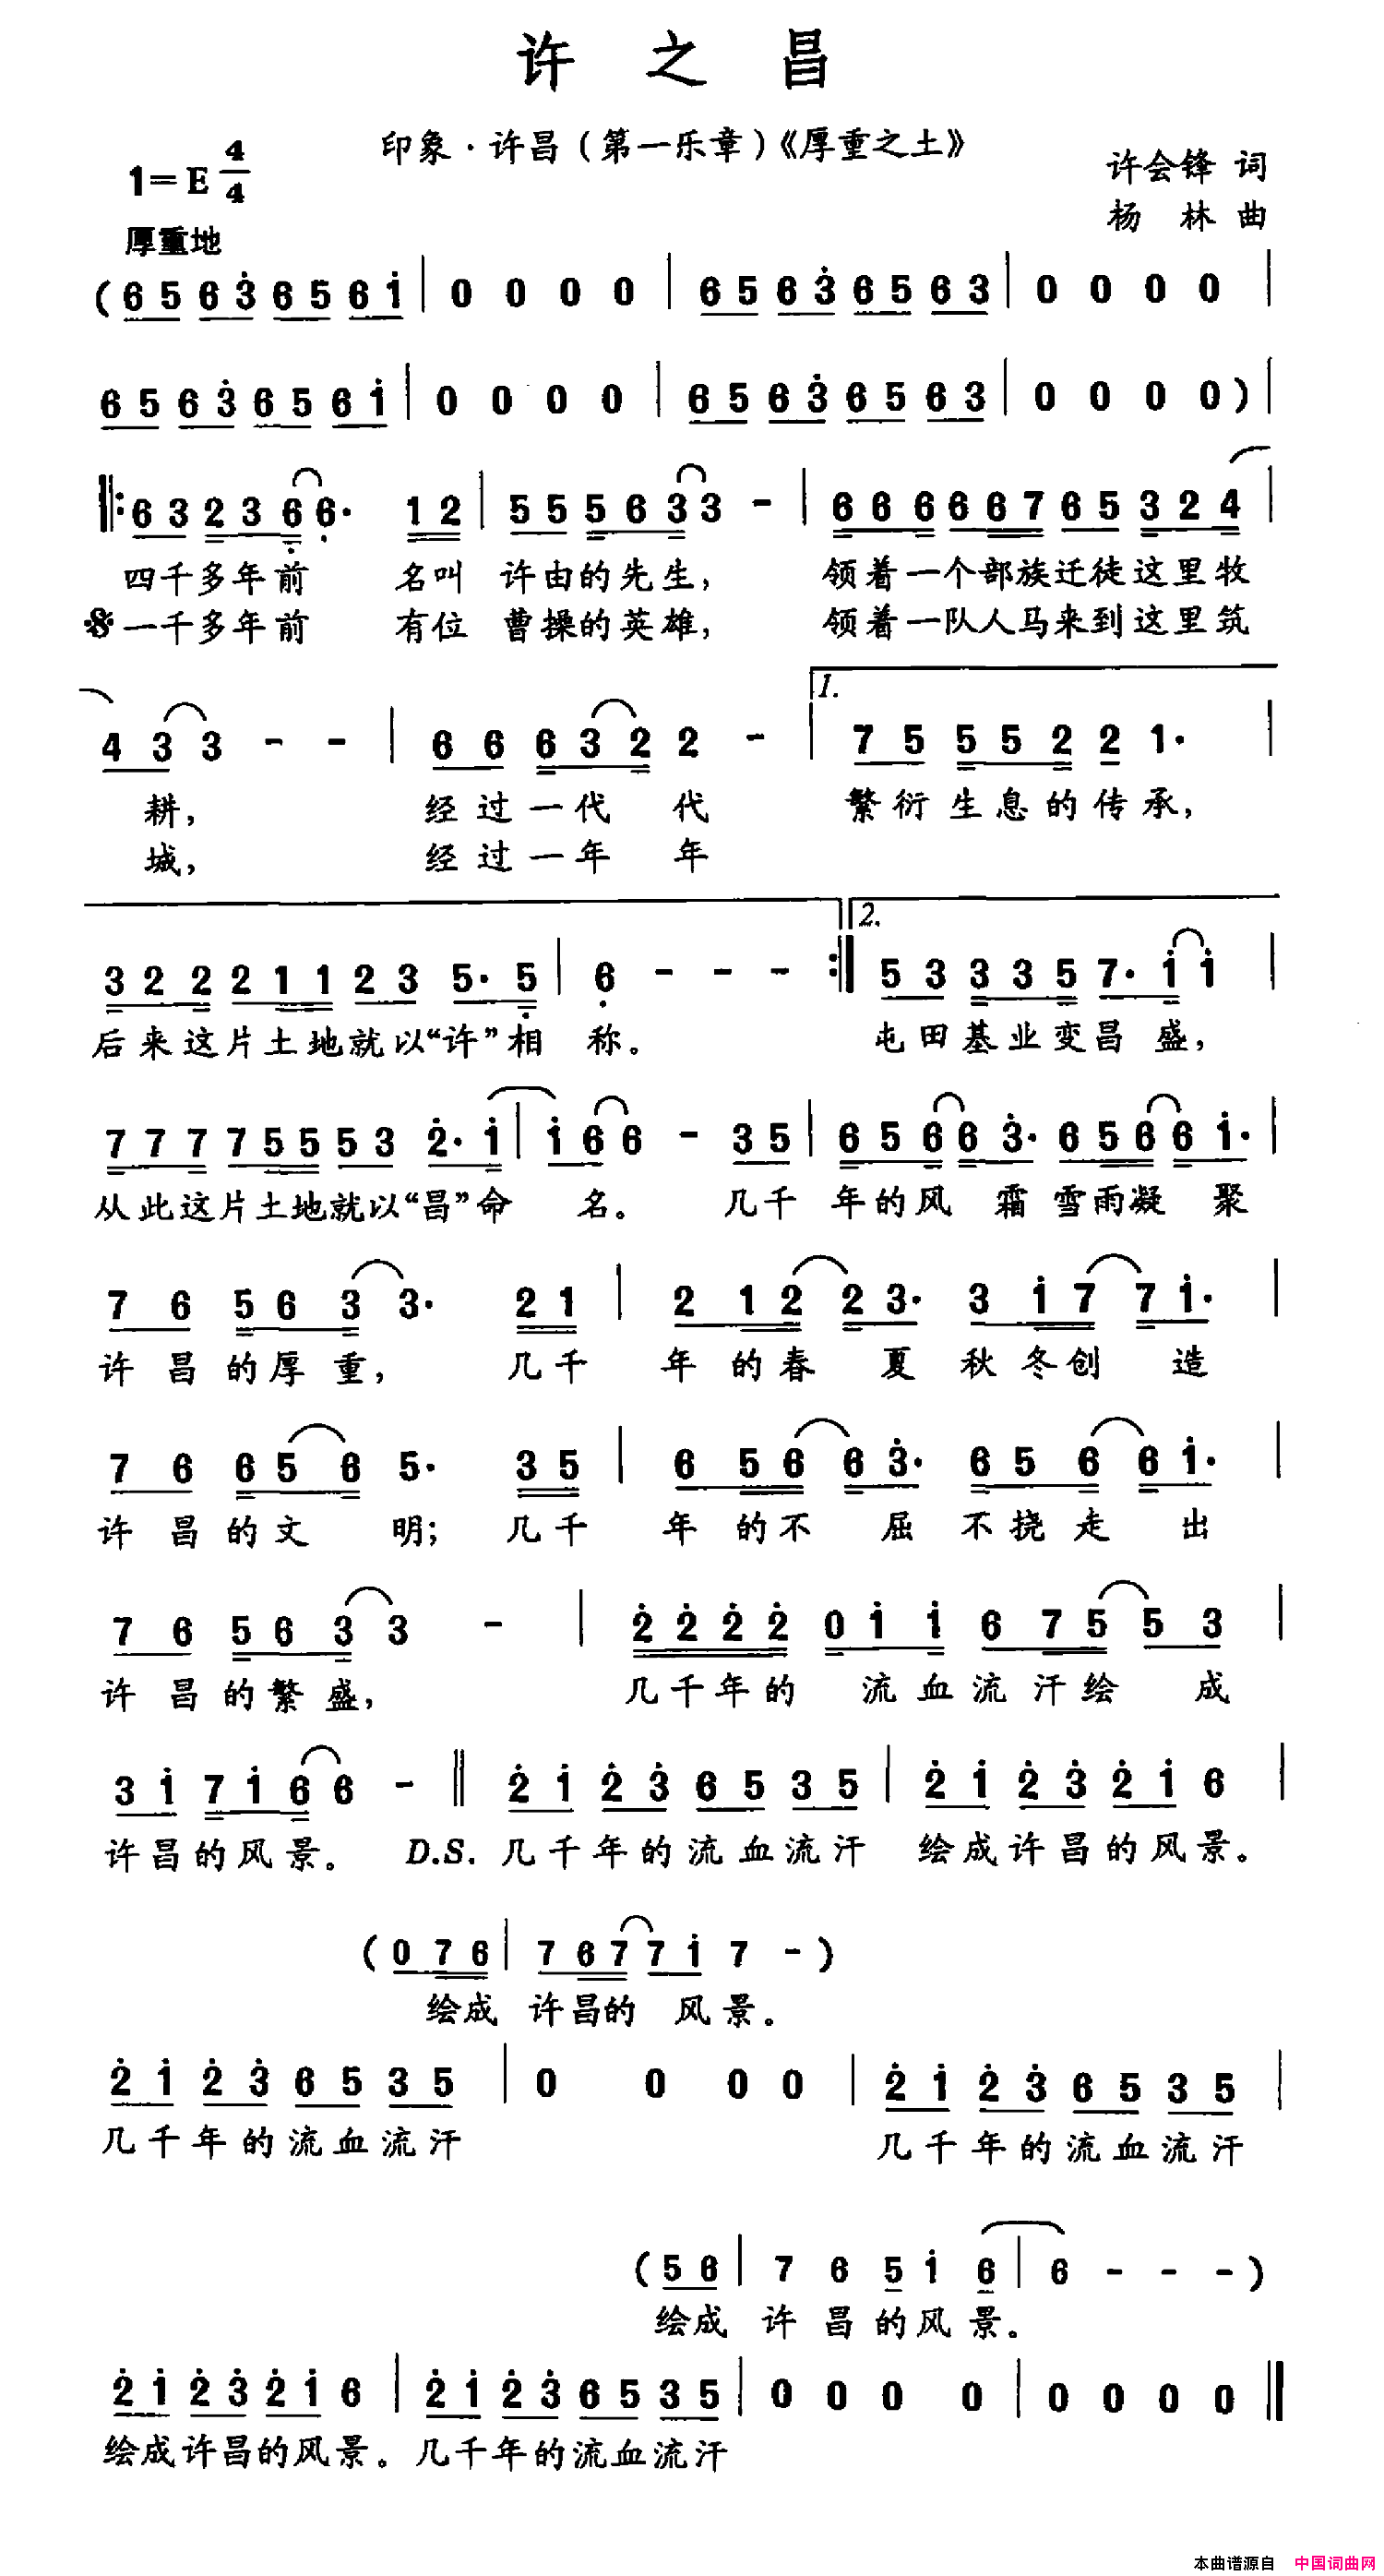 许之昌
印象·许昌(第一乐章)《厚重之土》
1=E 4/4
许会锋 词
杨 林 曲
厚重地
(6 5 6 3 6 5 6 1 | 0 0 0 0 | 6 5 6 3 6 5 6 3 | 0 0 0 0 |
6 5 6 3 6 5 6 1 | 0 0 0 0 | 6 5 6 3 6 5 6 3 | 0 0 0 0 ) |
‖: 6 3 2 3 6 6· 1 2 | 5 5 5 6 3 3 - | 6 6 6 6 6 7 6 5 3 2 4 |
四千多年前 名叫 许由的先生, 领着一个部族迁徒这里牧
一千多年前 有位 曹操的英雄, 领着一队人马来到这里筑
4 3 3 - - | 6 6 6 3 2 2 - | 1. 7 5 5 5 2 2 1· |
耕, 经过一代 代 繁衍生息的传承,
城, 经过一年 年
3 2 2 2 1 1 2 3 5· 5 | 6 - - - :‖ 2. 5 3 3 3 5 7· 1 1 |
后来这片土地就以“许”相 称。 屯田基业变昌 盛,
7 7 7 7 5 5 5 3 2· 1 | 1 6 6 - 3 5 | 6 5 6 6 3· 6 5 6 6 1· |
从此这片土地就以“昌”命 名。 几千 年的风 霜 雪雨凝 聚
7 6 5 6 3 3· 2 1 | 2 1 2 2 3· 3 1 7 7 1· |
许昌的厚重, 几千 年的春 夏 秋冬创 造
7 6 6 5 6 5· 3 5 | 6 5 6 6 3· 6 5 6 6 1· |
许昌的文 明; 几千 年的不 屈 不挠走 出
7 6 5 6 3 3 - | 2 2 2 2 0 1 1 6 7 5 5 3 |
许昌的繁盛, 几千年的 流血流汗绘 成
3 1 7 1 6 6 - ‖ 2 1 2 3 6 5 3 5 | 2 1 2 3 2 1 6 |
许昌的风景。 D.S. 几千年的流血流汗 绘成许昌的风景。
(0 7 6 | 7 6 7 7 1 7 - )
绘成 许昌的 风景。
2 1 2 3 6 5 3 5 | 0 0 0 0 | 2 1 2 3 6 5 3 5 |
几千年的流血流汗 几千年的流血流汗
(5 6 | 7 6 5 1 6 | 6 - - - )
绘成 许昌的风景。
2 1 2 3 2 1 6 | 2 1 2 3 6 5 3 5 | 0 0 0 0 | 0 0 0 0 ‖
绘成许昌的风景。几千年的流血流汗
本曲谱源自 中国词曲网